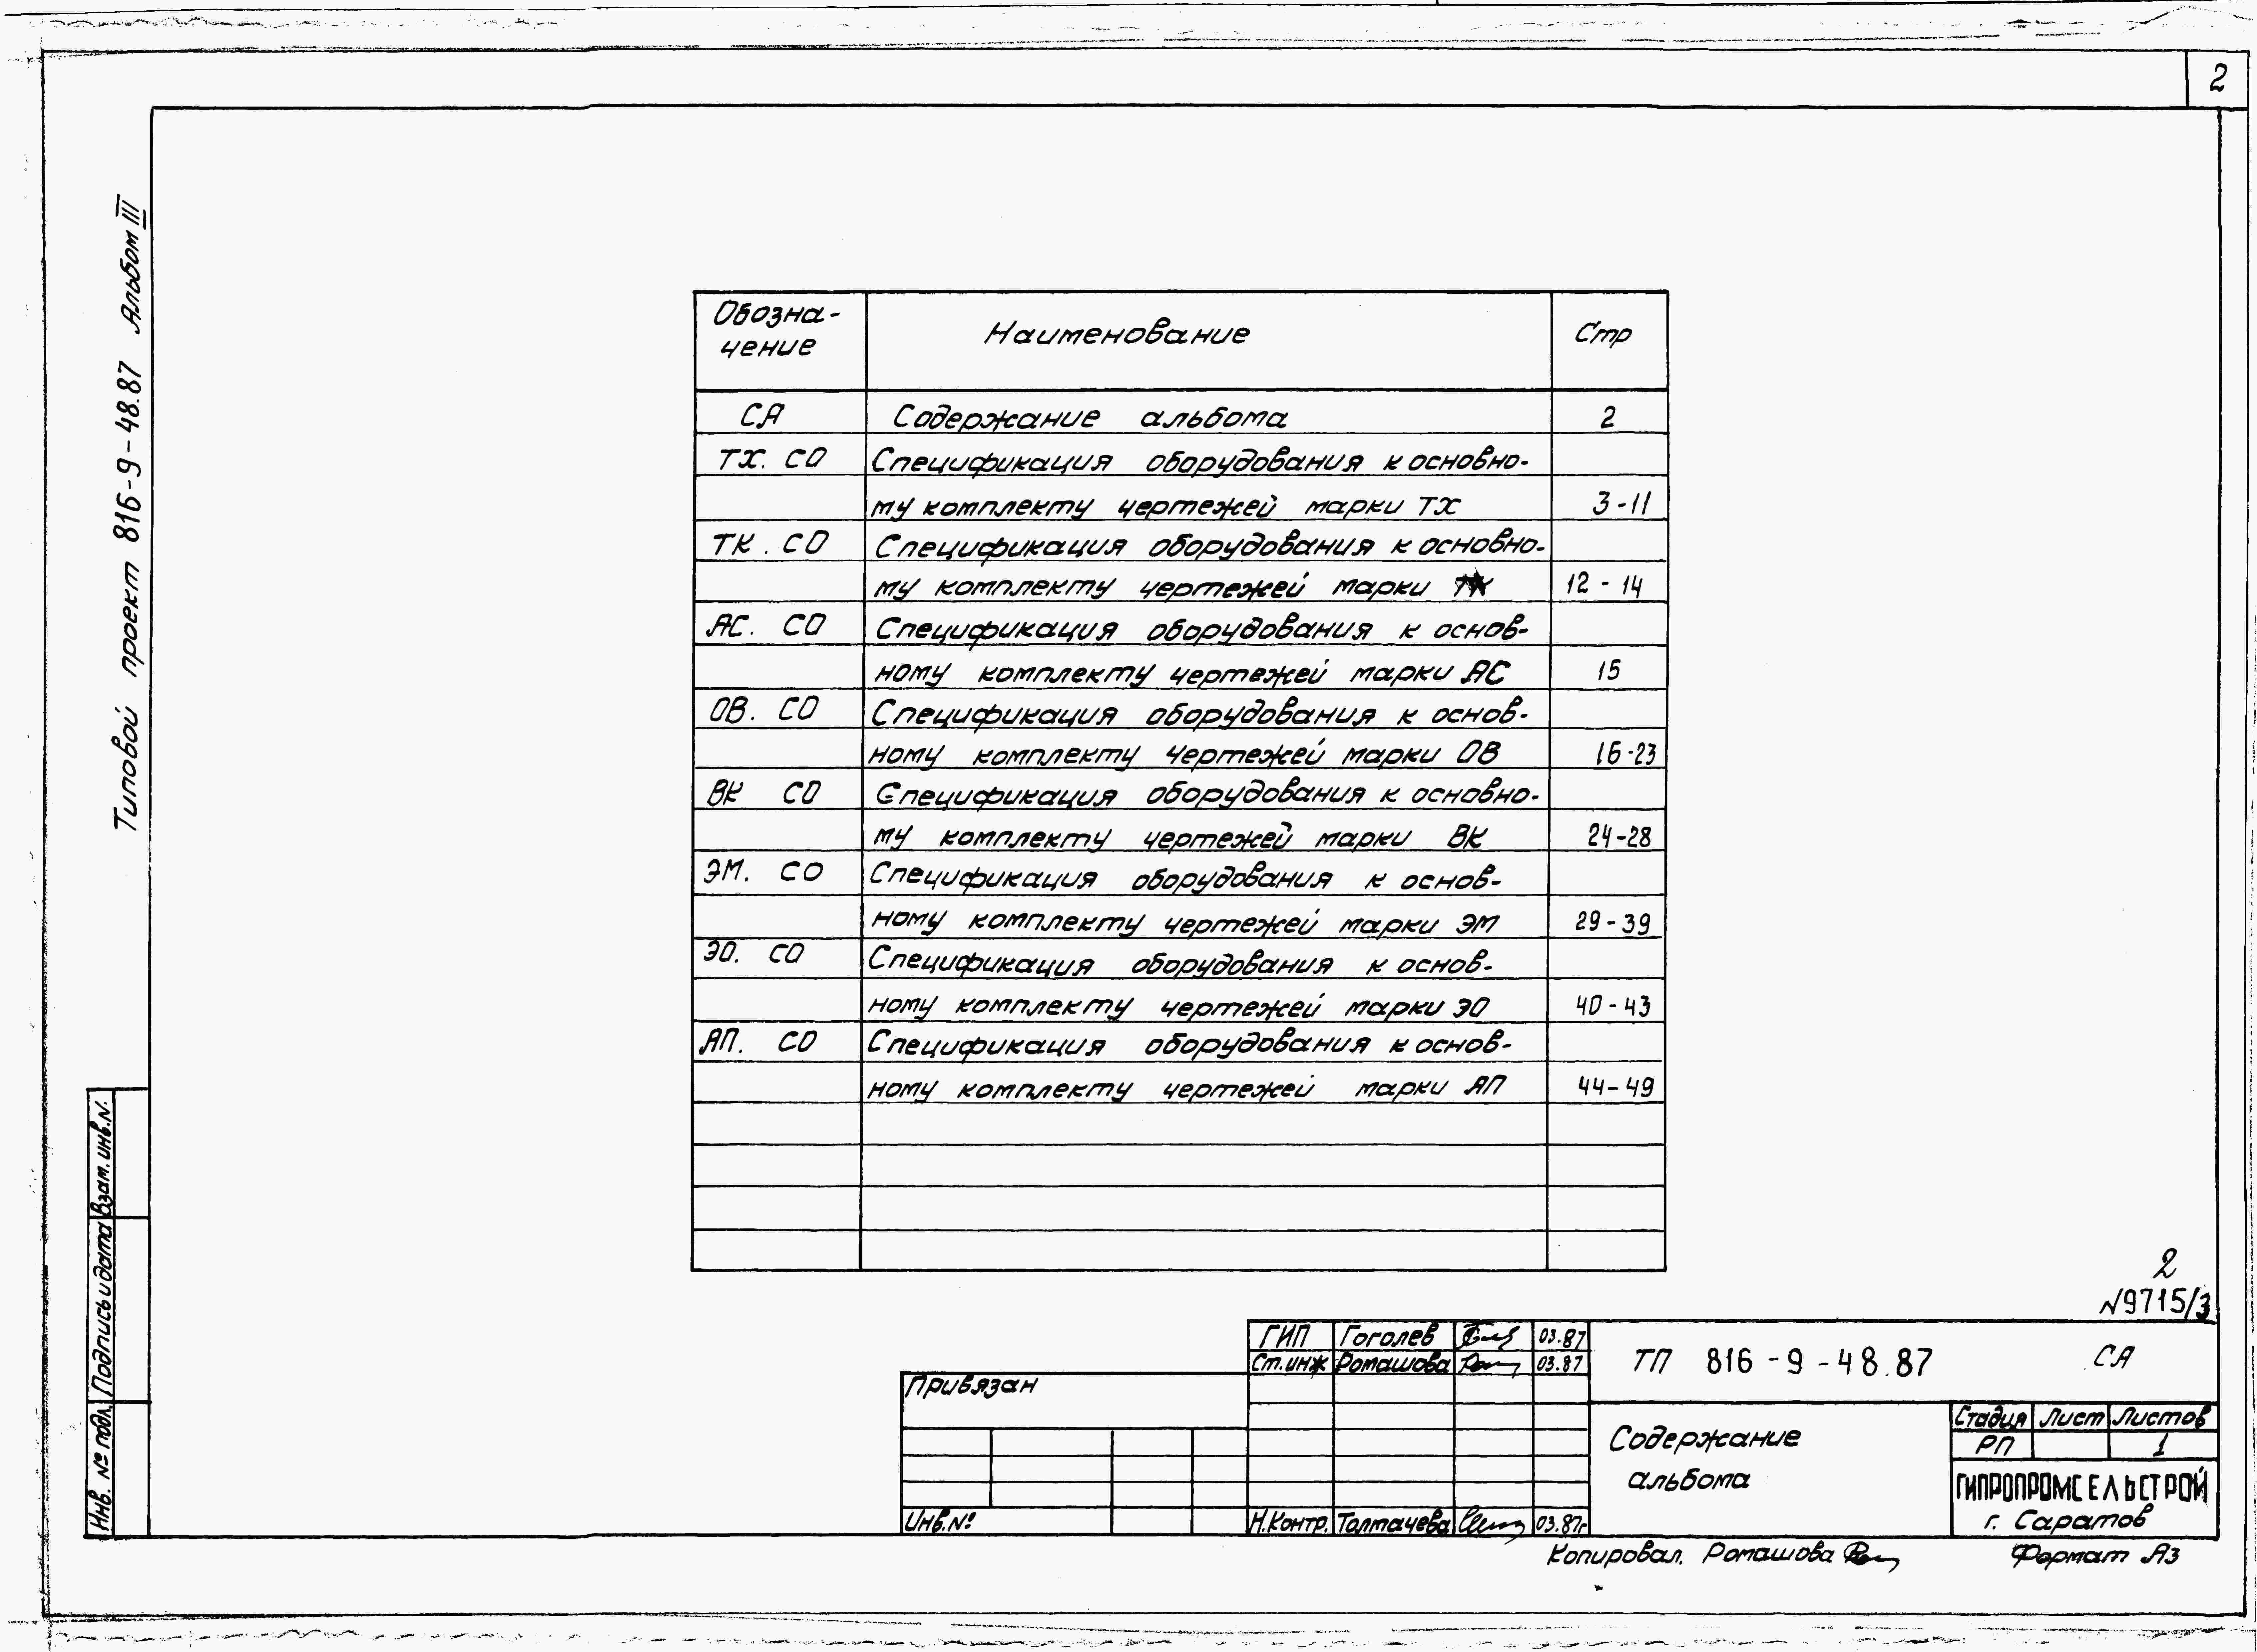 2
Типовой проект 816-9-48.87 Альбом III
Обозна-
чение
Наименование
Стр
СА Содержание альбома 2
ТХ. СО Спецификация оборудования к основно-
му комплекту чертежей марки ТХ 3-11
ТК. СО Спецификация оборудования к основно-
му комплекту чертежей марки 12-14
АС. СО Спецификация оборудования к основ-
ному комплекту чертежей марки АС 15
ОВ. СО Спецификация оборудования к основ-
ному комплекту чертежей марки ОВ 16-23
ВК СО Спецификация оборудования к основно-
му комплекту чертежей марки ВК 24-28
ЭМ. СО Спецификация оборудования к основ-
ному комплекту чертежей марки ЭМ 29-39
ЭО. СО Спецификация оборудования к основ-
ному комплекту чертежей марки ЭО 40-43
АП. СО Спецификация оборудования к основ-
ному комплекту чертежей марки АП 44-49
Взам. инв. N.
Подпись и дата
Инв. № подл.
2
N9715/3
ГИП Гоголев 03.87
Ст. инж Ромашова 03.87
Н.Контр. Толмачева 03.87г
Привязан
Инв. №
ТП 816-9-48.87 СА
Содержание
альбома
Стадия Лист Листов
РП 1
ГИПРОПРОМСЕЛЬСТРОЙ
г. Саратов
Копировал. Ромашова
Формат А3